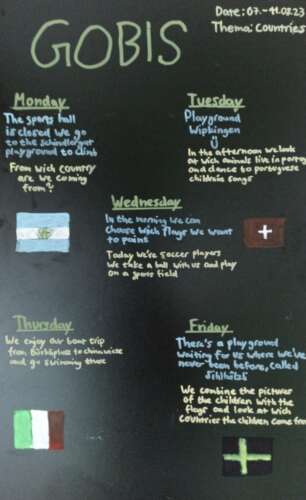 Date: 07.-11.08.23
Thema: Countries
GOBIS
Monday
The sports hall
is closed We go
to the Schindlergut
playground to climb
From wich country
are we coming
from?
Tuesday
Playground
Wipkingen
In the afternoon we look
at wich animals live in portu
and dance to portuguese
childrens songs
Wednesday
In the morning we can
choose wich flags we want
to paint
Today we're soccer players
We take a ball with us and play
on a sports field
Thursday
We enjoy our boat trip
from Bürkliplatz to chinawiese
and go swimming there
Friday
There's a playground
waiting for us where we've
never been before, called
Sihlhölzli
We combine the pictures
of the children with the
flags and look at wich
countries the children come from